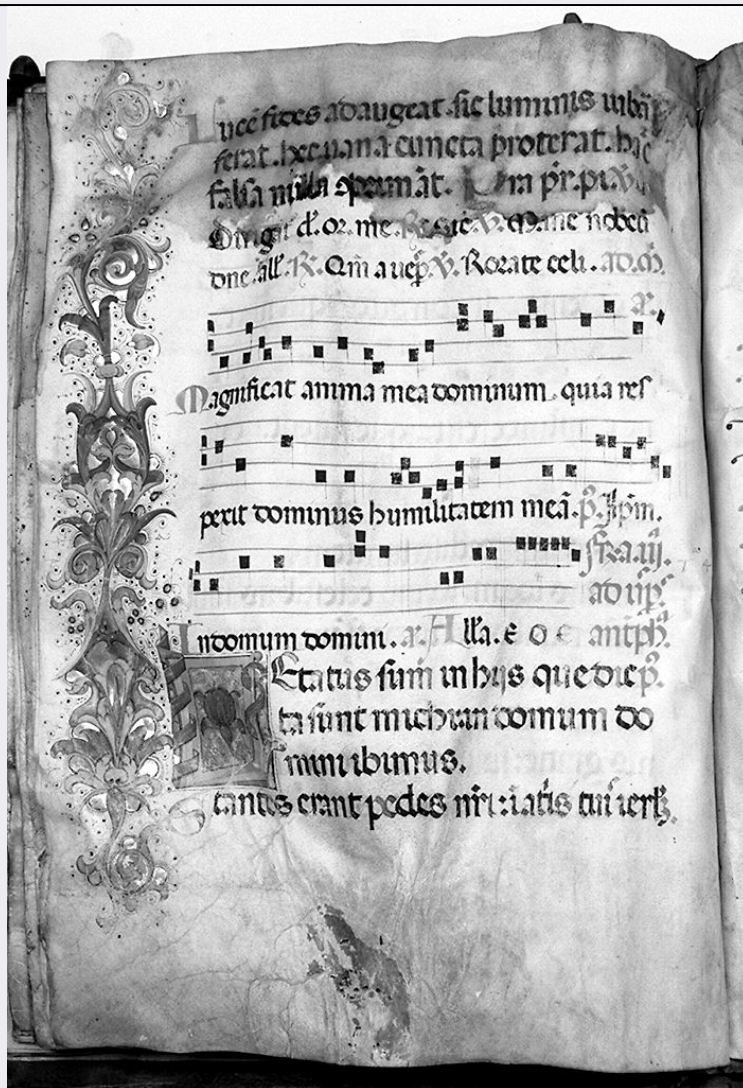 Lucē fides adaugeat. sic luminis iubā
ferat. hec uana cuncta proterat. hāc
falsa nulla operimāt. pr̄.
Dirigat d̄. or. me.
dn̄e all̄. R̄. V̄. Rorate celi. ad. m̄.
a.
Magnificat anima mea dominum. quia res
perit dominus humilitatem meā. p̄. Ip̄m.
fr̄a. iij.
ad up̄.
In domum domini. a. Alla. e o e antph̄.
Letatus sum in hijs que dic p̄.
ta sunt michi in domum do
mini ibimus.
Stantes erant pedes nr̄i: i atris tuis ierl̄.